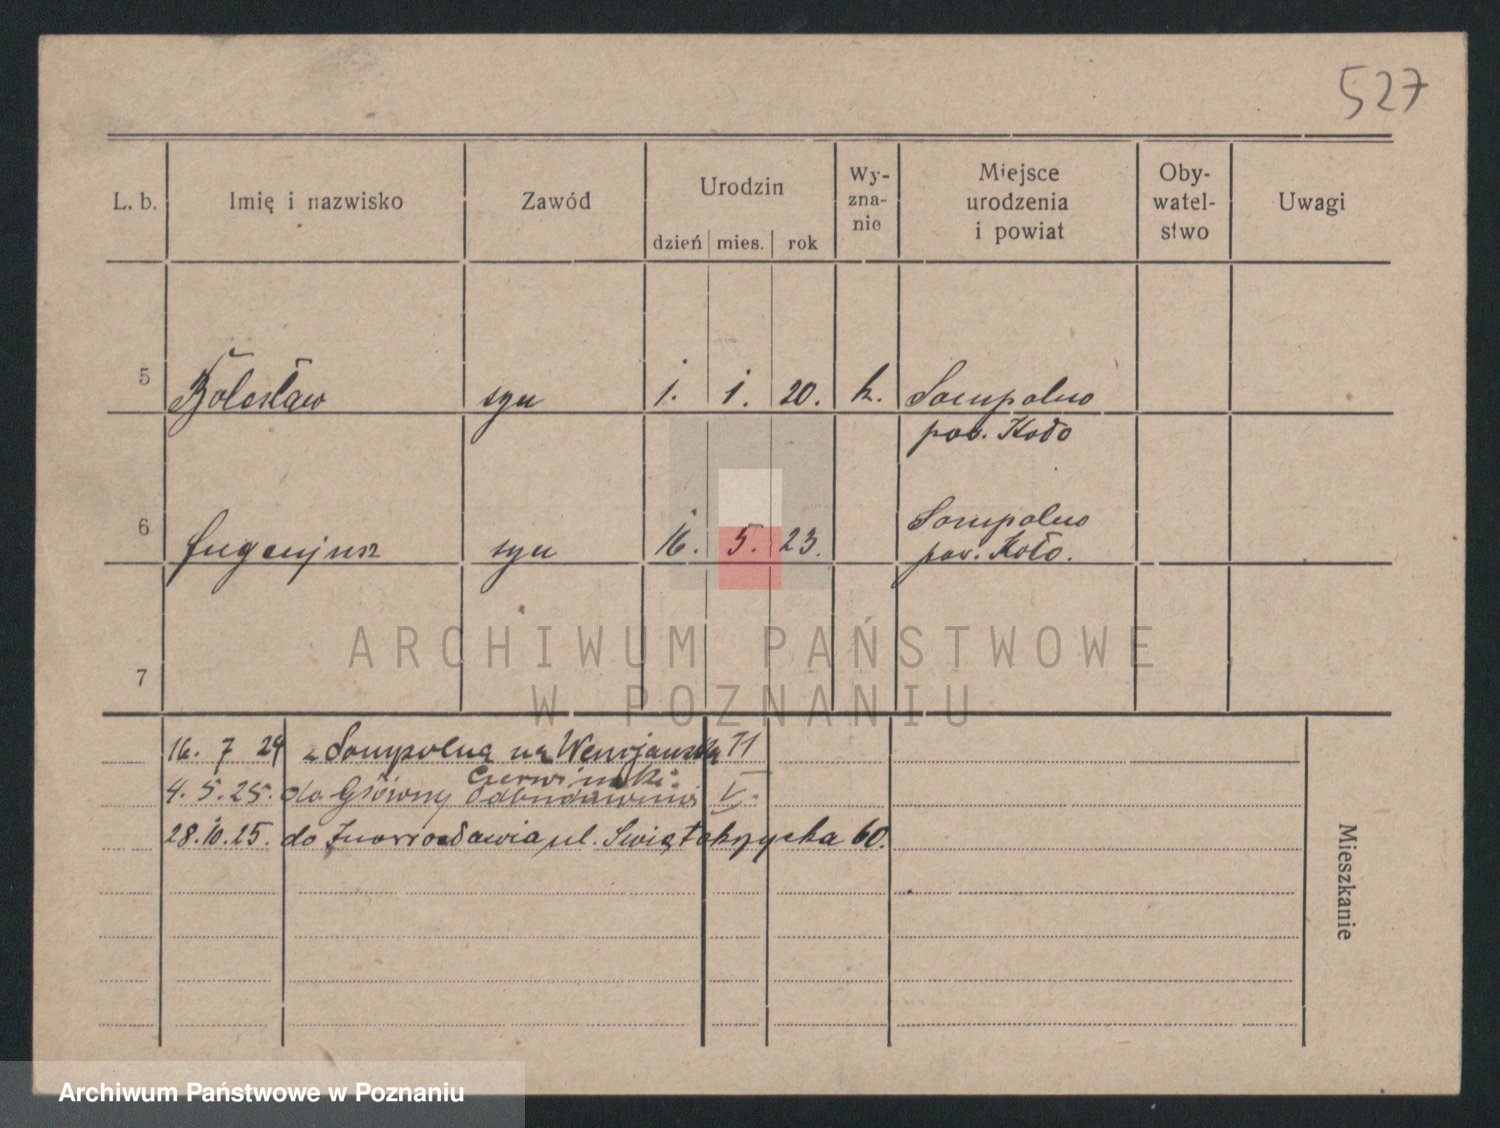 527
L. b. Imię i nazwisko Zawód Urodzin Wy-zna-nie Miejsce urodzenia i powiat Oby-watel-stwo Uwagi
dzień mies. rok
5 Bolesław syn 1. 1. 20. k. Sompolno
pow. Koło
6 Eugenjusz syn 16. 5. 23. Sompolno
pow. Koło.
7
ARCHIWUM PAŃSTWOWE
W POZNANIU
16. 7 24 z Sompolna na 11
Czerwiński
4. 5. 25. do Główny V.
28. 10. 25. do Inowrocławia ul. Świętokrzycka 60.
Mieszkanie
Archiwum Państwowe w Poznaniu